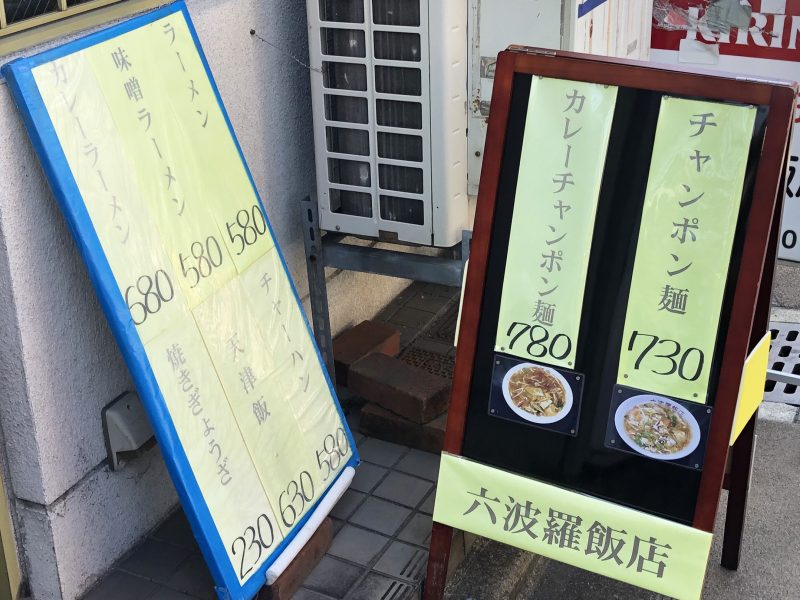 ラーメン 580
味噌ラーメン 580
カレーラーメン 680
チャーハン 580
天津飯 630
焼きぎょうざ 230
チャンポン麺
730
カレーチャンポン麺
780
六波羅飯店
KIRIN